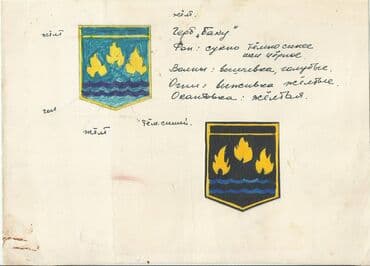 жёлт
жёлт
Герб „Баку"
Фон: сукно тёмносинее
или чёрное
Волны: вышивка, голубые.
Огни: вышивка жёлтые.
Окантовка: жёлтая.
тём. синий.
жёлт